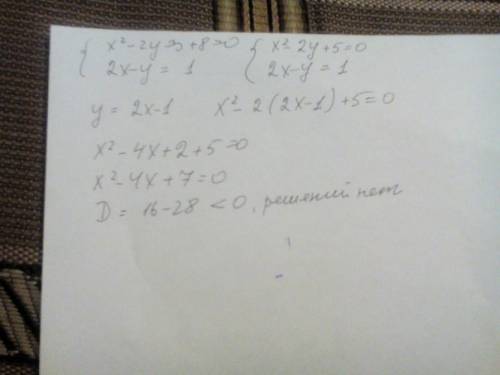 { x² - 2y - 3 + 8 = 0 { x² - 2y + 5 = 0
2x - y = 1 2x - y = 1
y = 2x - 1 x² - 2(2x - 1) + 5 = 0
x² - 4x + 2 + 5 = 0
x² - 4x + 7 = 0
D = 16 - 28 < 0, решений нет